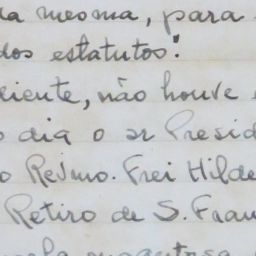 da mesma, para
dos estatutos."
diente, não houve
dia o sr Presid
o Revmo. Frei Hilde
Retiro de S. Fran